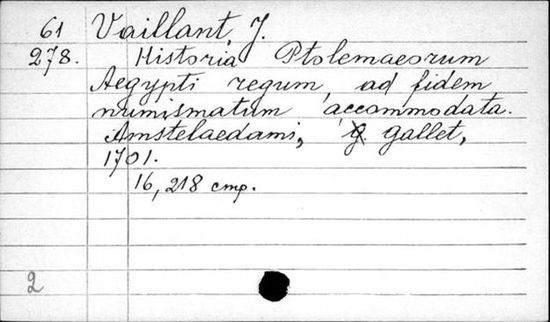 61 Vaillant, J.
278. Historia Ptolemaeorum
Aegypti regum, ad fidem
numismatum accommodata.
Amstelaedami, G gallet,
1701.
16, 218 стр.
2